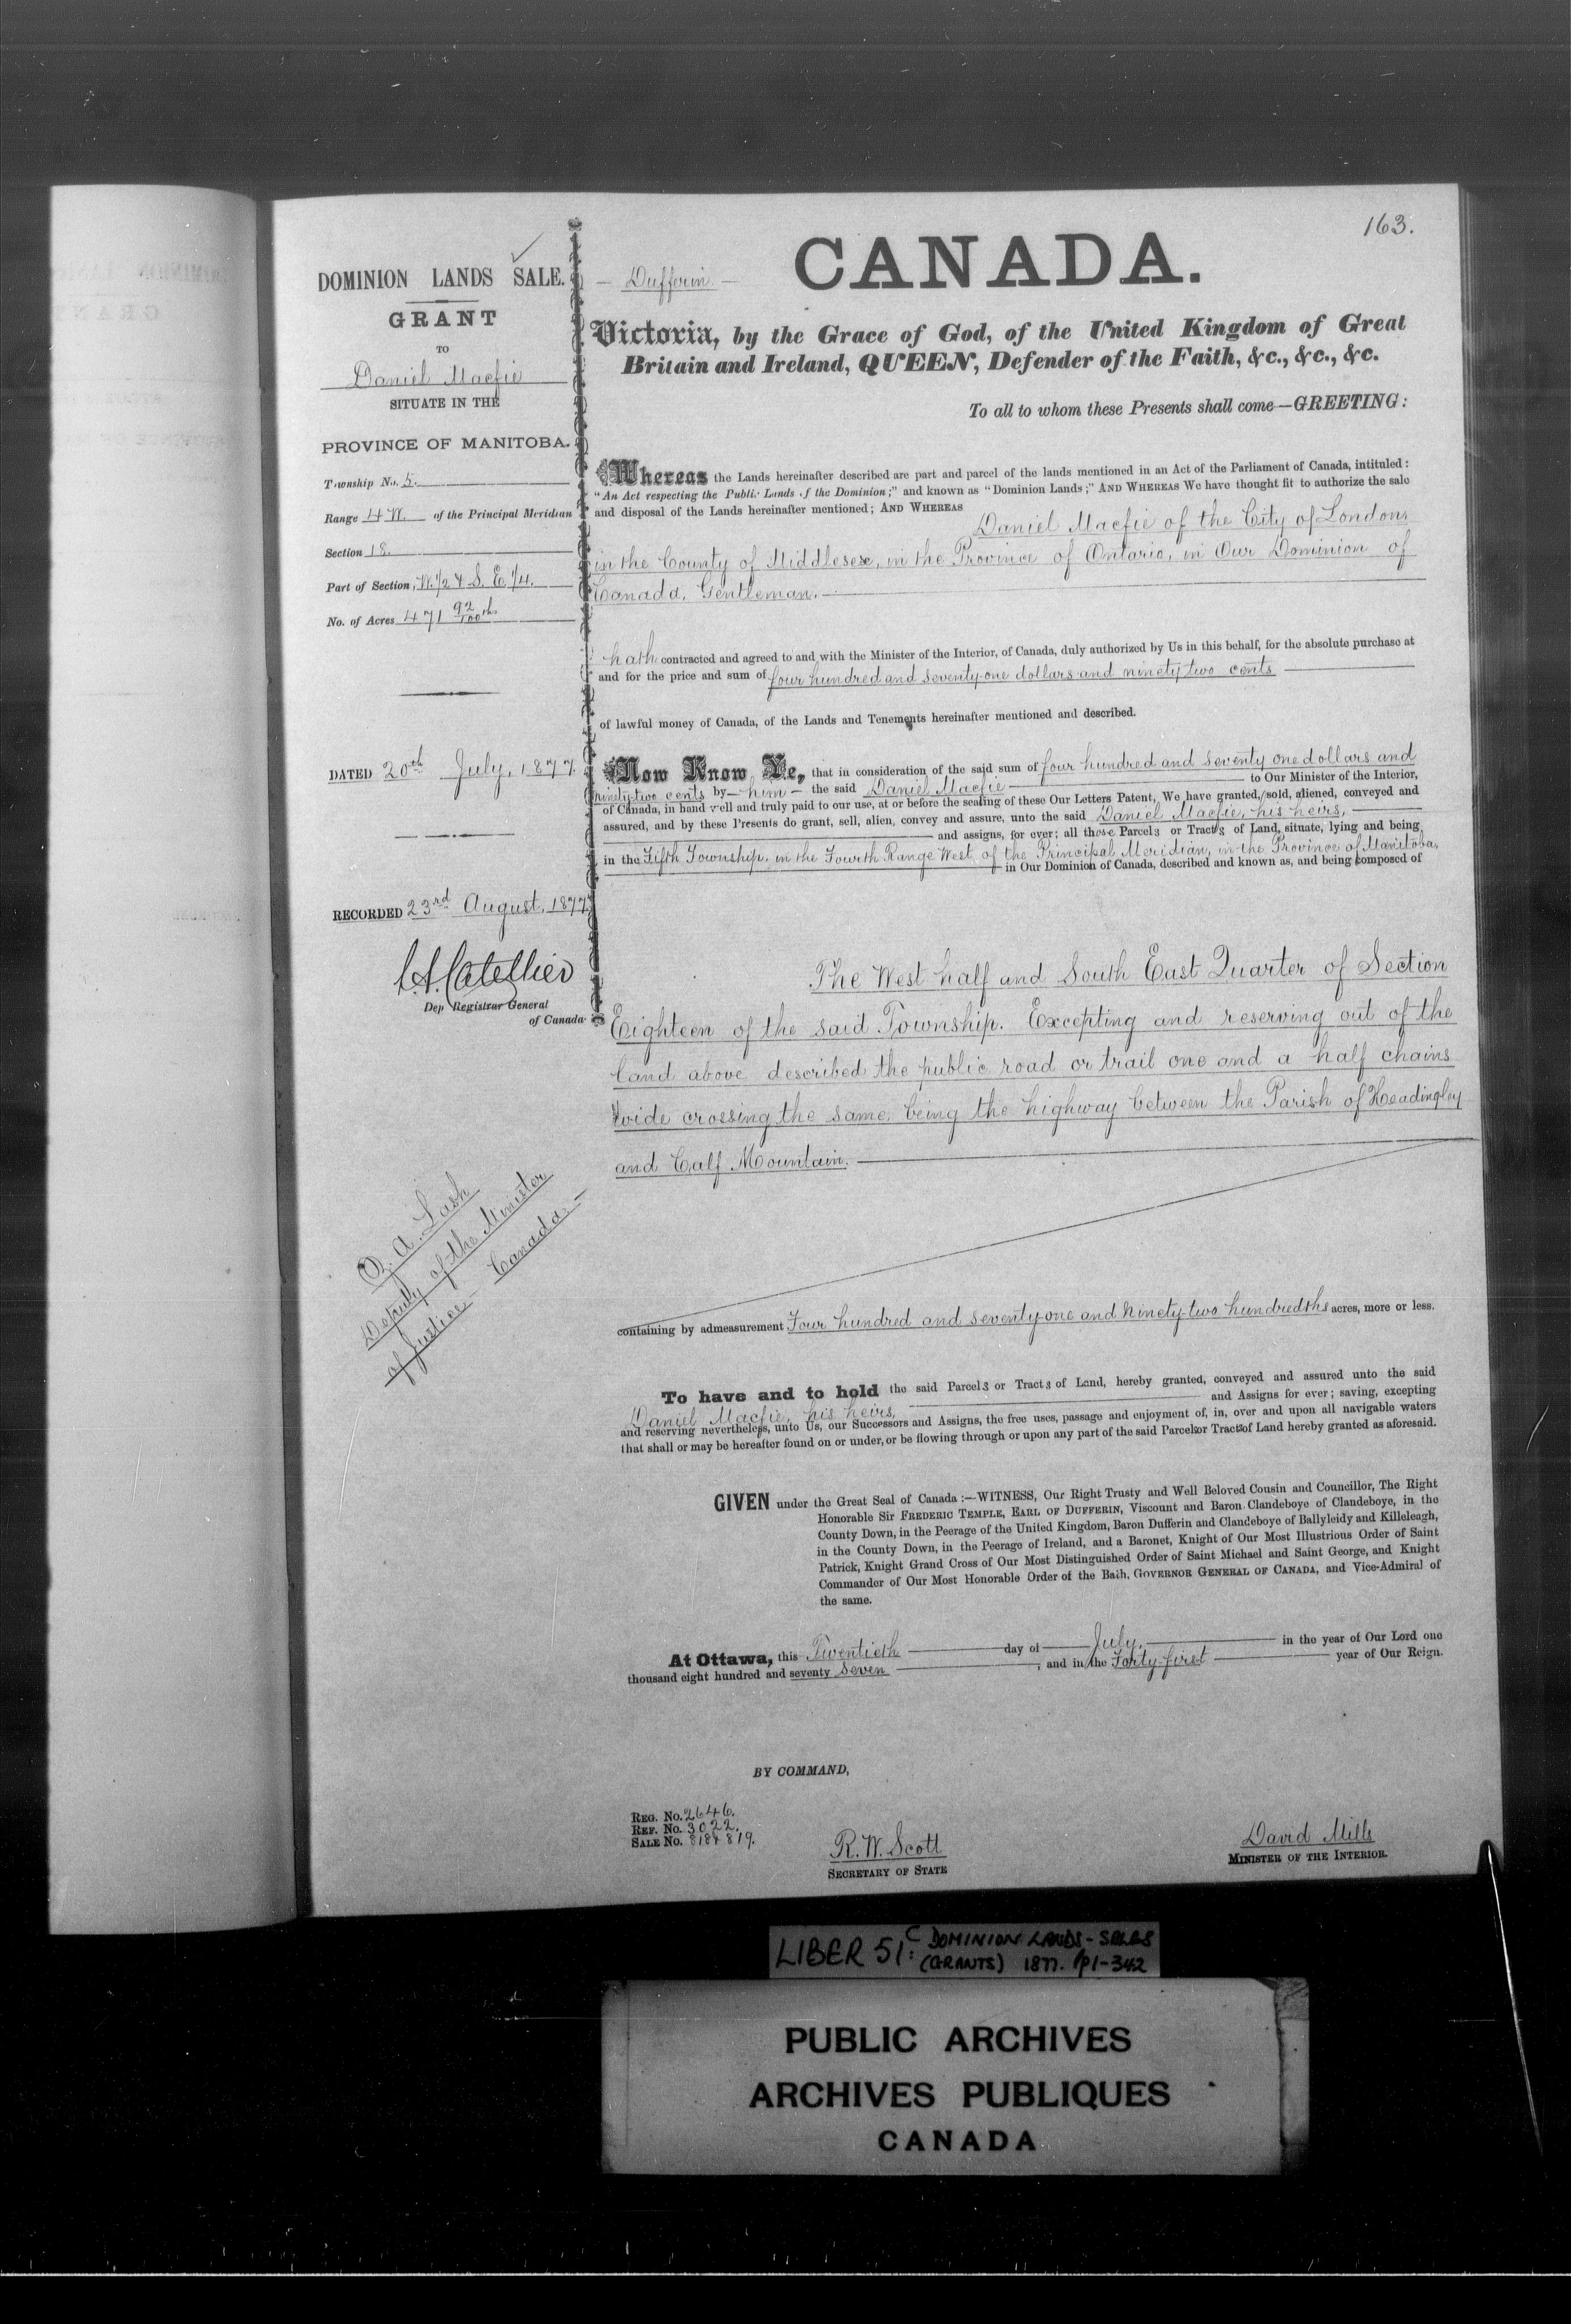 163.
DOMINION LANDS SALE.
GRANT
TO
Daniel Macfie
SITUATE IN THE
PROVINCE OF MANITOBA.
Township No. 5.
Range 4 W. of the Principal Meridian
Section 18.
Part of Section, W. 1/2 & S. E. 1/4.
No. of Acres 471 92/100ths
DATED 20th July, 1877.
RECORDED 23rd August, 1877.
L.A. Catellier
Dep Registrar General
of Canada
Z. A. Lash
Deputy of the Minister
of Justice - Canada. -
- Dufferin. -
CANADA.
Victoria, by the Grace of God, of the United Kingdom of Great
Britain and Ireland, QUEEN, Defender of the Faith, &c., &c., &c.
To all to whom these Presents shall come—GREETING:
Whereas the Lands hereinafter described are part and parcel of the lands mentioned in an Act of the Parliament of Canada, intituled:
"An Act respecting the Public Lands of the Dominion;" and known as "Dominion Lands;" AND WHEREAS We have thought fit to authorize the sale
and disposal of the Lands hereinafter mentioned; AND WHEREAS
Daniel Macfie of the City of London,
in the County of Middlesex, in the Province of Ontario, in Our Dominion of
Canada, Gentleman.
hath contracted and agreed to and with the Minister of the Interior, of Canada, duly authorized by Us in this behalf, for the absolute purchase at
and for the price and sum of four hundred and seventy-one dollars and ninety two cents
of lawful money of Canada, of the Lands and Tenements hereinafter mentioned and described.
Now Know Ye, that in consideration of the said sum of four hundred and seventy one dollars and
ninety-two cents by - him - the said Daniel Macfie to Our Minister of the Interior,
of Canada, in hand well and truly paid to our use, at or before the sealing of these Our Letters Patent, We have granted, sold, aliened, conveyed and
assured, and by these Presents do grant, sell, alien, convey and assure, unto the said Daniel Macfie, his heirs,
and assigns, for ever; all those Parcels or Tracts of Land, situate, lying and being
in the Fifth Township, in the Fourth Range West of the Principal Meridian, in the Province of Manitoba,
in Our Dominion of Canada, described and known as, and being composed of
The West half and South East Quarter of Section
Eighteen of the said Township. Excepting and reserving out of the
land above described the public road or trail one and a half chains
wide crossing the same, being the highway between the Parish of Headingley
and Calf Mountain.
containing by admeasurement Four hundred and seventy-one and ninety-two hundredths acres, more or less.
To have and to hold the said Parcels or Tracts of Land, hereby granted, conveyed and assured unto the said
Daniel Macfie, his heirs, and Assigns for ever; saving, excepting
and reserving nevertheless, unto Us, our Successors and Assigns, the free uses, passage and enjoyment of, in, over and upon all navigable waters
that shall or may be hereafter found on or under, or be flowing through or upon any part of the said Parcels or Tracts of Land hereby granted as aforesaid.
GIVEN under the Great Seal of Canada:—WITNESS, Our Right Trusty and Well Beloved Cousin and Councillor, The Right
Honorable Sir FREDERIC TEMPLE, EARL OF DUFFERIN, Viscount and Baron Clandeboye of Clandeboye, in the
County Down, in the Peerage of the United Kingdom, Baron Dufferin and Clandeboye of Ballyleidy and Killeleagh,
in the County Down, in the Peerage of Ireland, and a Baronet, Knight of Our Most Illustrious Order of Saint
Patrick, Knight Grand Cross of Our Most Distinguished Order of Saint Michael and Saint George, and Knight
Commander of Our Most Honorable Order of the Bath, GOVERNOR GENERAL OF CANADA, and Vice-Admiral of
the same.
At Ottawa, this Twentieth day of July, in the year of Our Lord one
thousand eight hundred and seventy seven, and in the Forty-first year of Our Reign.
BY COMMAND,
REG. No. 2646.
REF. No. 3022.
SALE No. 818 & 819.
R. W. Scott
SECRETARY OF STATE
David Mills
MINISTER OF THE INTERIOR.
LIBER 51: C DOMINION LANDS - SALES
(GRANTS) 1877. pp1-342
PUBLIC ARCHIVES
ARCHIVES PUBLIQUES
CANADA